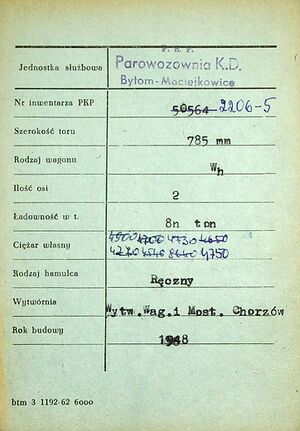 P. K. P.
Jednostka służbowa Parowozownia K.D.
Bytom-Maciejkowice
Nr inwentarza PKP 50564 2206-5
Szerokość toru 785 mm
Rodzaj wagonu Wh
Ilość osi 2
Ładowność w t. 8n ton
Ciężar własny 4730
4750
Rodzaj hamulca Ręczny
Wytwórnia Wytw.Wag.i Most. Chorzów
Rok budowy 1948
btm 3 1192-62 6000